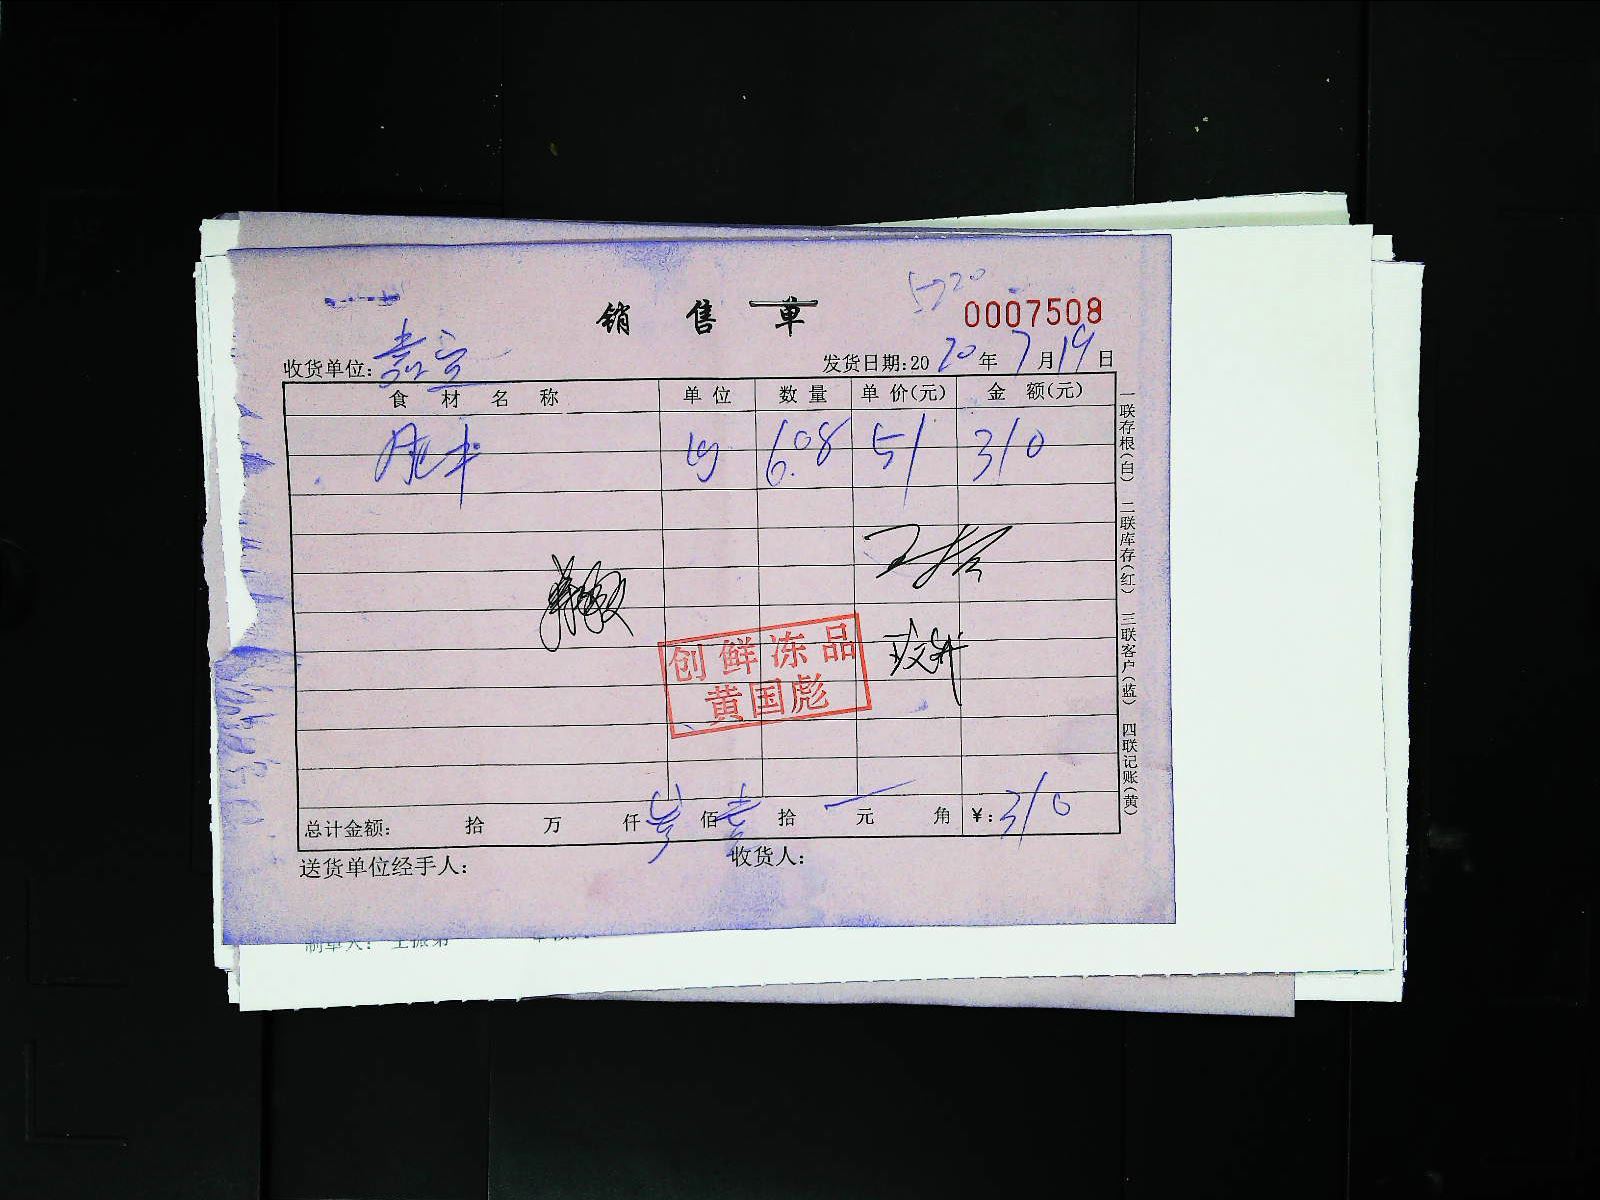 5720
销售单 0007508
收货单位: 嘉宝 发货日期:2020年7月19日
食材名称 单位 数量 单价(元) 金额(元)
肥牛 kg 6.08 51 310
创鲜冻品
黄国彪
总计金额: 拾 万 仟 叁佰 壹拾 元 角 ¥:310
送货单位经手人: 收货人:
一联存根(白) 二联库存(红) 三联客户(蓝) 四联记账(黄)